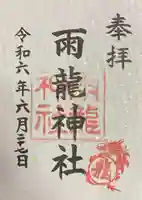 奉拝
雨龍神社
令和六年六月二十七日